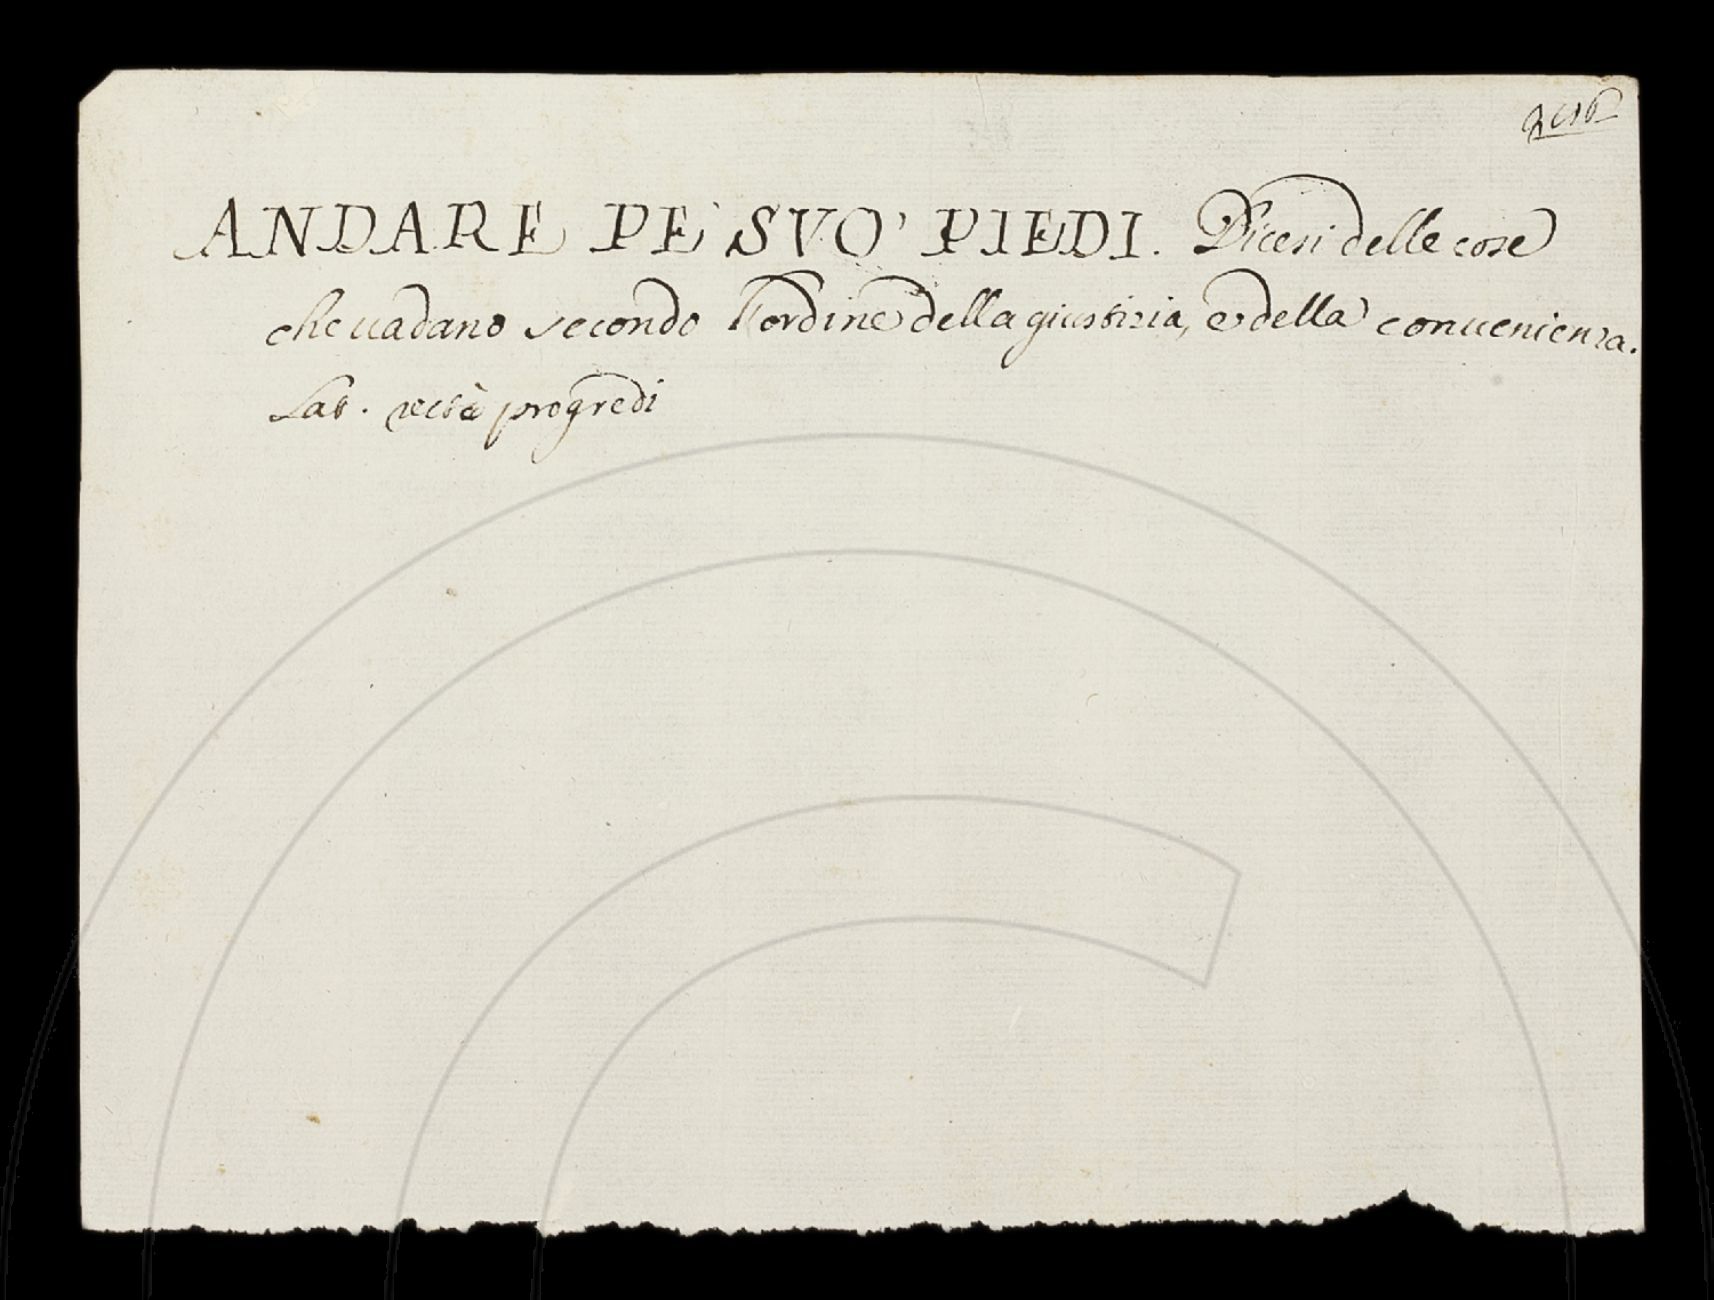 ANDARE PE' SVO' PIEDI. Dicesi delle cose
che uadano secondo l'ordine della giustizia, e della conuenienza.
Lat. rectè progredi